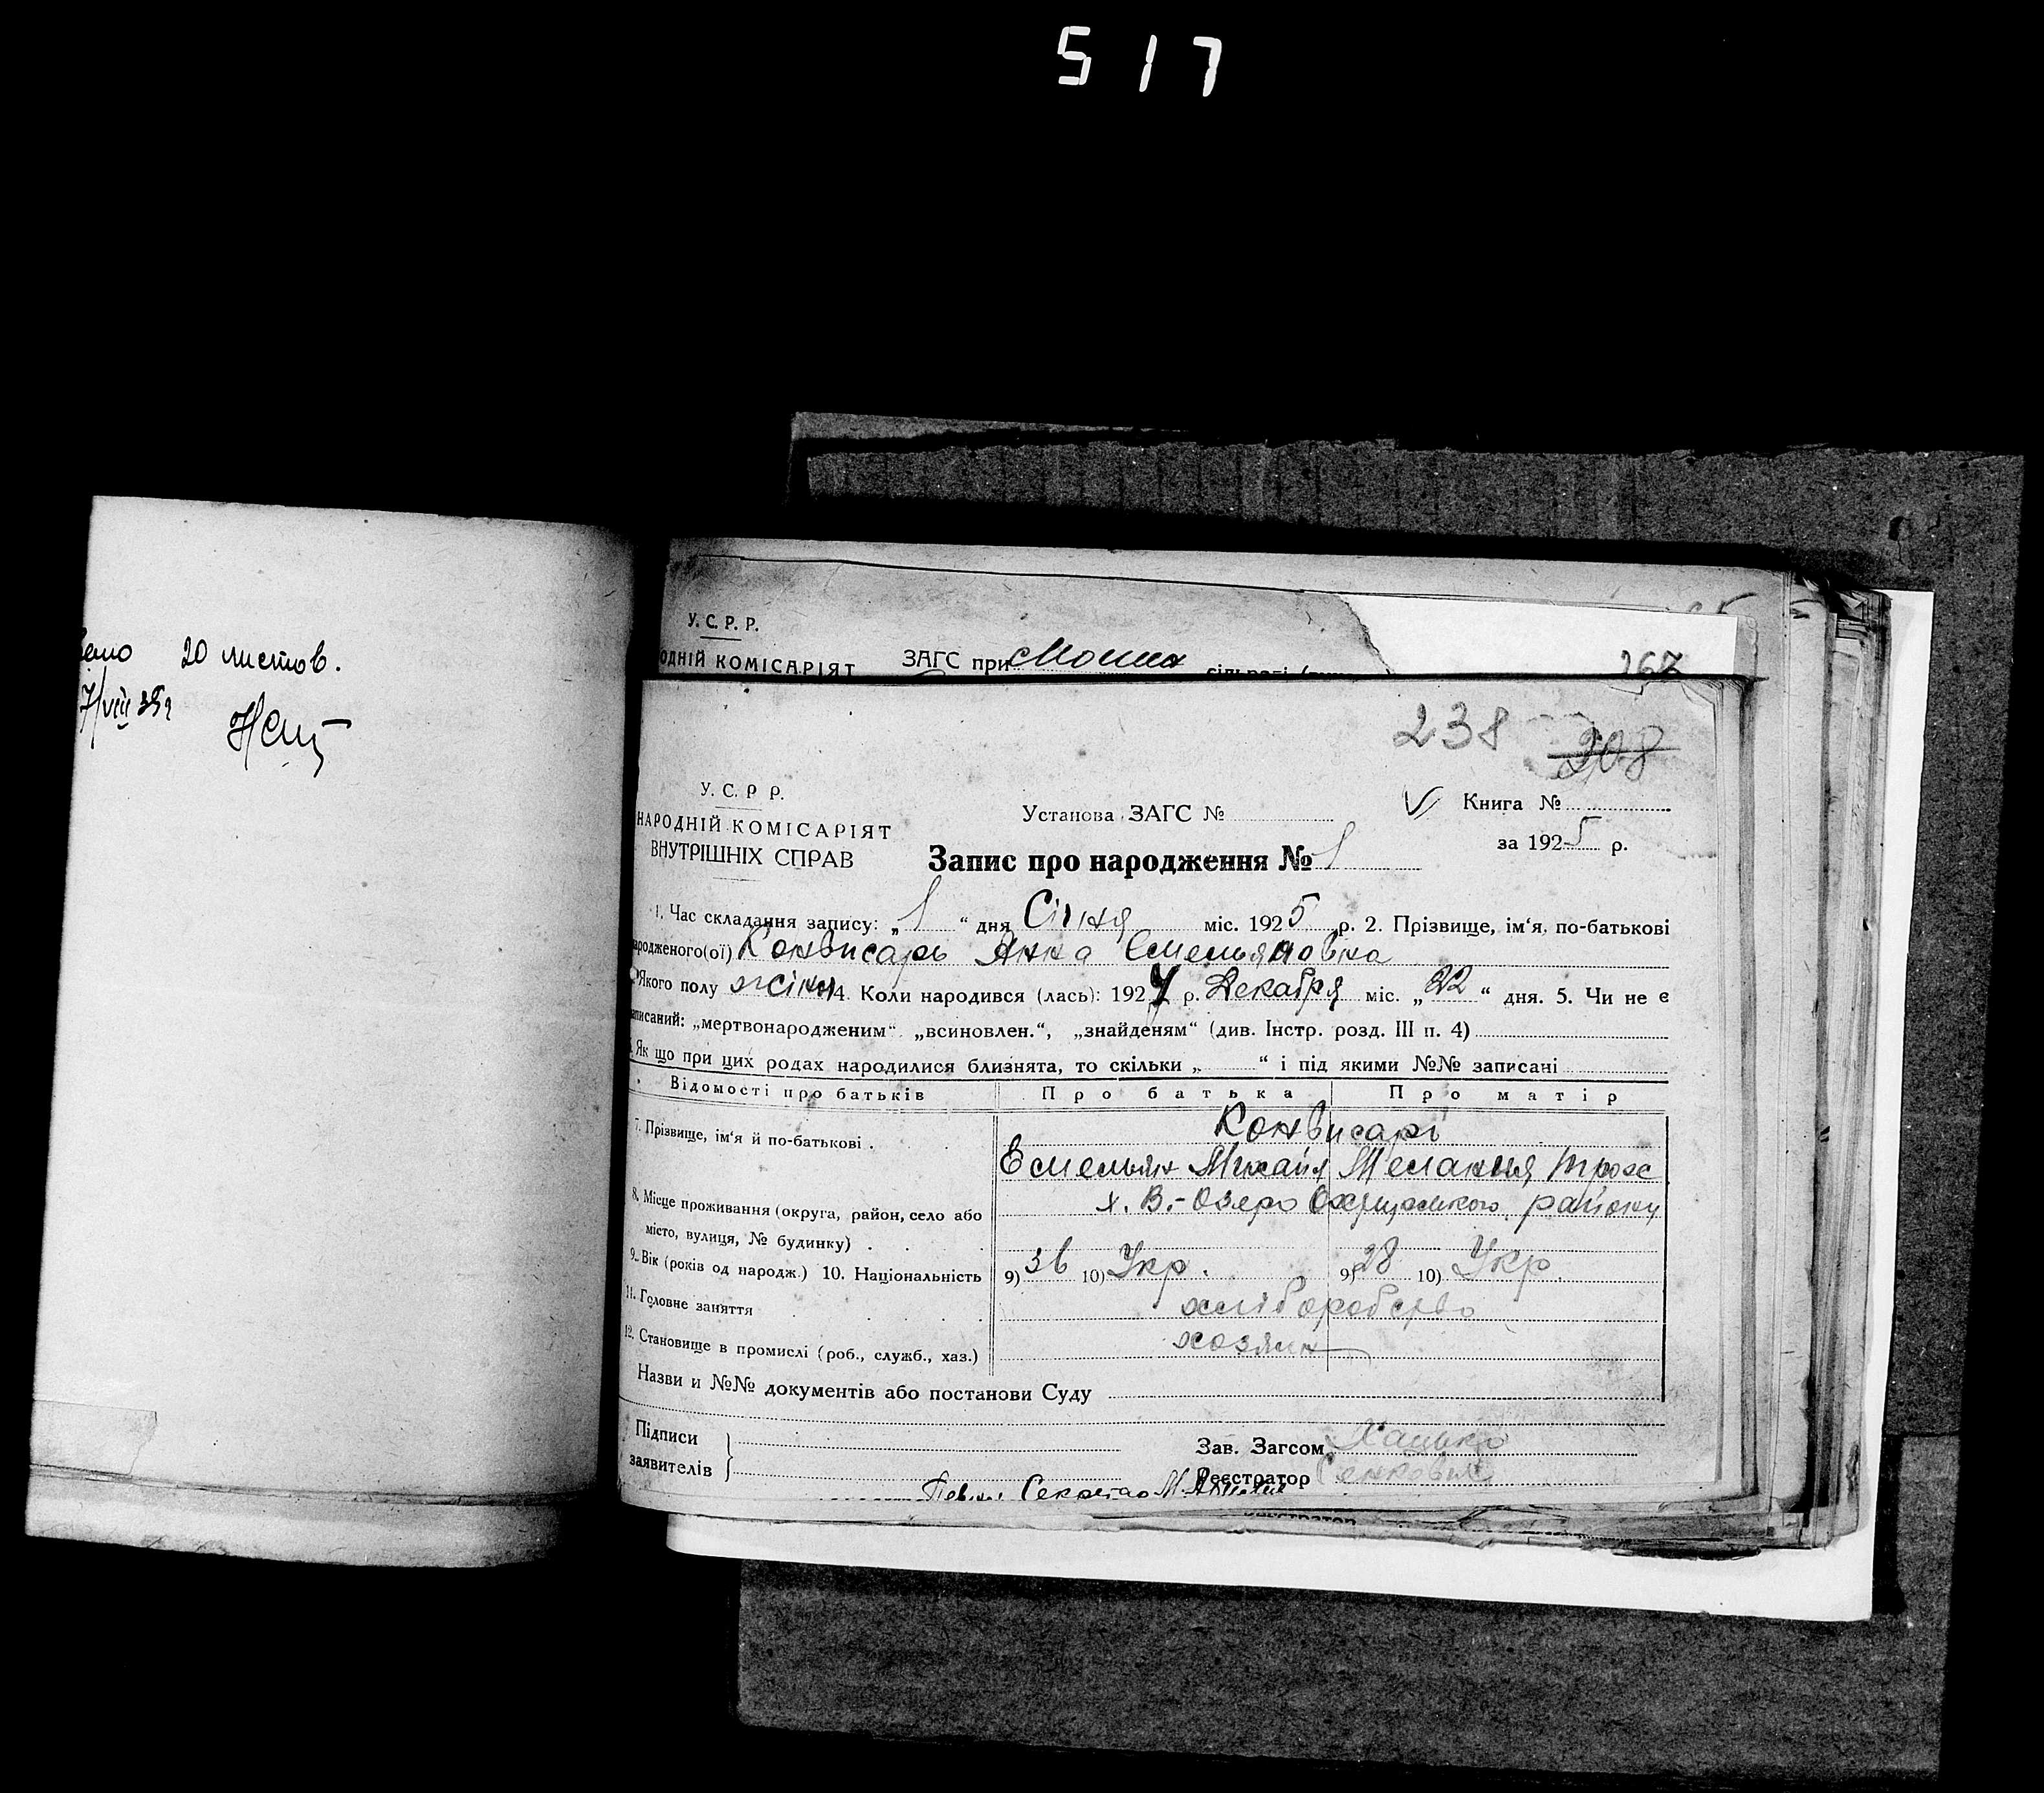 517
20 листов.
У. С. Р. Р.
ОДНІЙ КОМІСАРІЯТ ЗАГС при
267
238 208
У. С. Р Р.
НАРОДНІЙ КОМІСАРІЯТ
ВНУТРІШНІХ СПРАВ
Установа ЗАГС №
Книга №
за 1925 р.
Запис про народження № 1
1. Час складання запису: „ 1 “ дня Січня міс. 1925 р. 2. Прізвище, ім‘я, по-батькові
народженого(ої) Конвисарь Анна Емельяновна
Якого полу жіноч 4. Коли народився (лась): 1924 р. Декабря міс. „ 22 “ дня. 5. Чи не є
записаний: „мертвонародженим“ „всиновлен.“, „знайденям“ (див. Інстр. розд. III п. 4)
Як що при цих родах народилися близнята, то скільки „ “ і під якими №№ записані
Відомості про батьків Про батька Про матір
7. Прізвище, ім‘я й по-батькові . Конвисарі
Емельян Михайл Мелания Трох
8. Місце проживання (округа, район, село або х. В.-Озеро Охтирського району
місто, вулиця, № будинку) .
9. Вік (років од народж.) 10. Національність 9) 36 10) Укр. 9) 28 10) Укр.
11. Головне заняття хліборобство
12. Становище в промислі (роб., служб., хаз.) хозяин
Назви и №№ документів або постанови Суду
Підписи
заявителів
Зав. Загсом Ханько
Реєстратор
Секретар